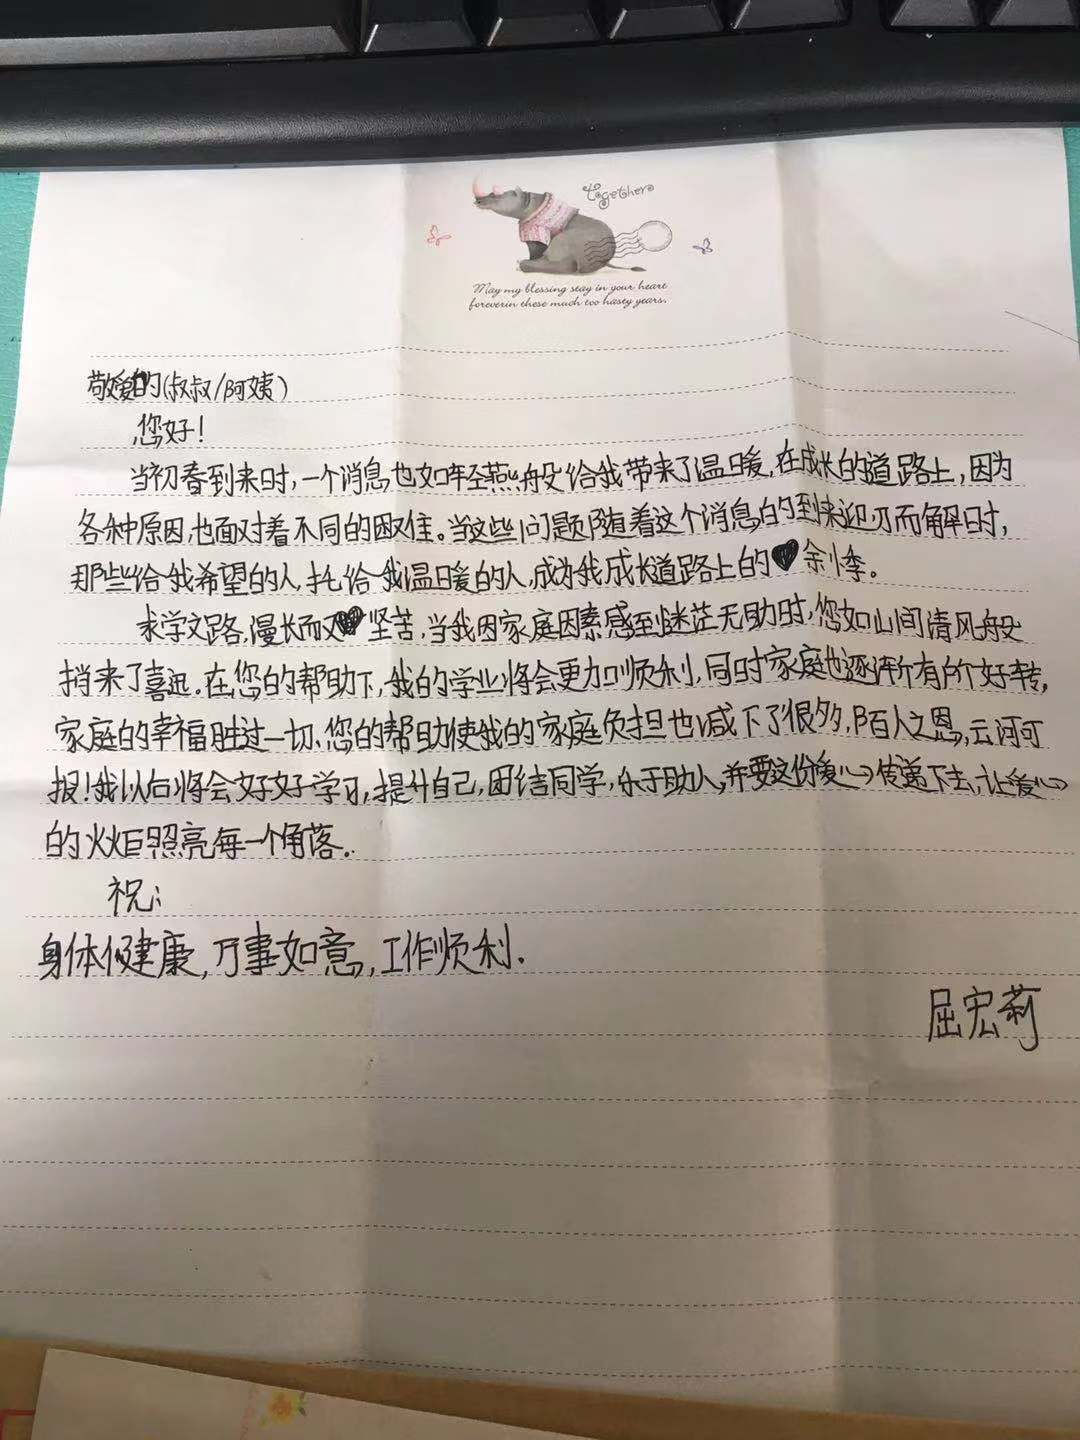 together
May my blessing stay in your heart
foreverin these much too hasty years.
敬爱的(叔叔/阿姨)
您好!
当初春到来时,一个消息也如轻燕般给我带来了温暖,在成长的道路上,因为
各种原因,也面对着不同的困难。当这些问题随着这个消息的到来迎刃而解时,
那些给我希望的人,扎给我温暖的人,成为我成长道路上的 余小季。
求学之路,漫长而又 坚苦,当我因家庭因素感到迷茫无助时,您如山间清风般
捎来了喜迅.在您的帮助下,我的学业将会更加顺利,同时家庭也逐渐有所好转,
家庭的幸福胜过一切、您的帮助使我的家庭负担也减下了很多,陌人之恩,云何可
报!我以后将会好好学习,提升自己,团结同学,乐于助人,并要这份爱心传递下去,让爱心
的火炬照亮每一个角落.
祝:
身体健康,万事如意,工作顺利.
屈宏莉